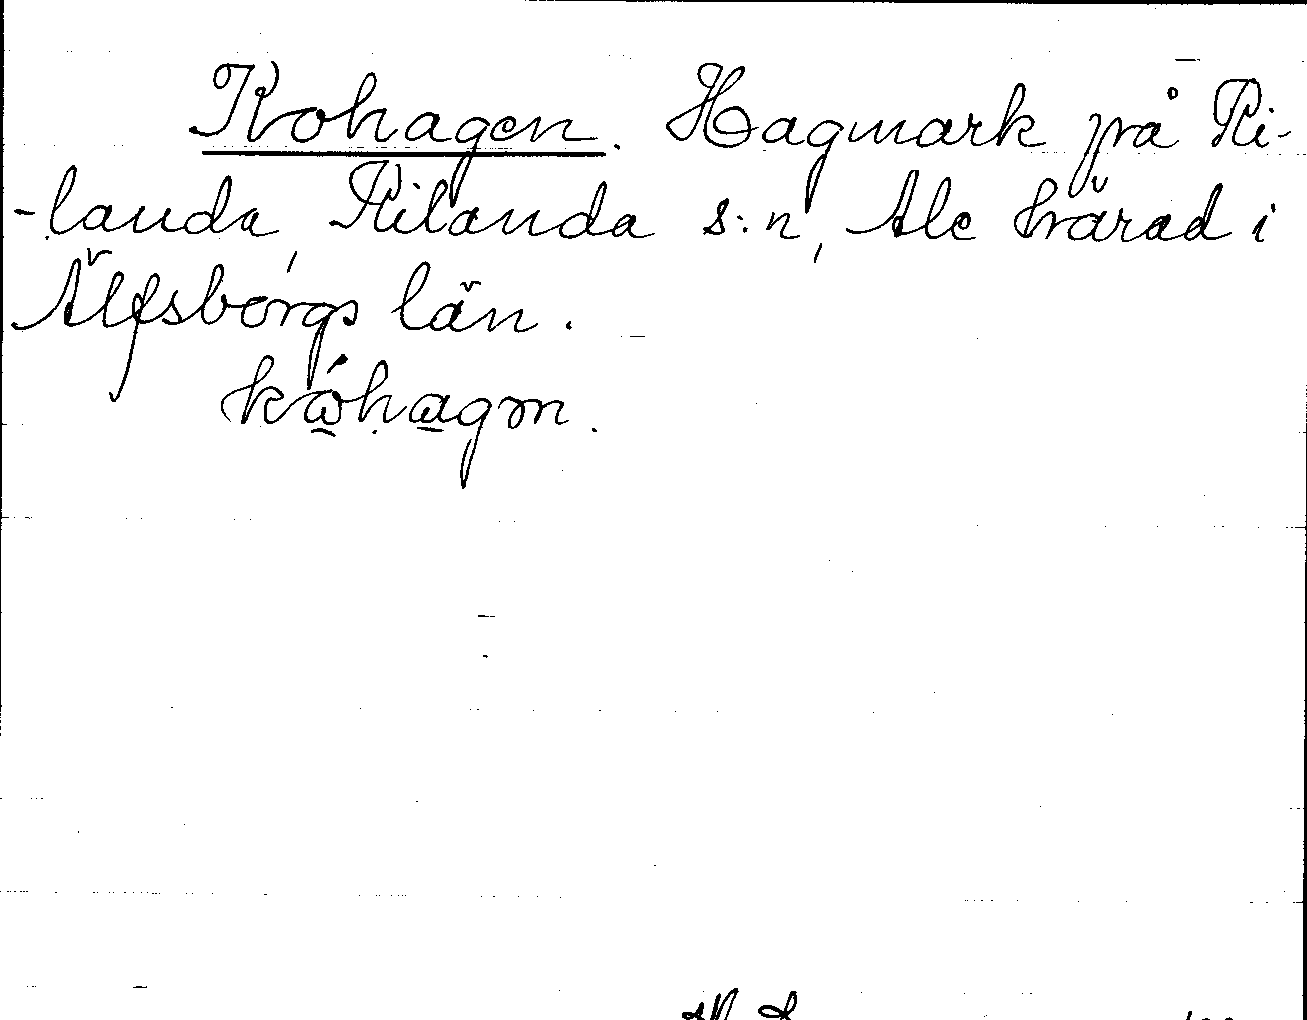 Kohagen. Hagmark på Ri-
-landa, Rilanda s:n, Ale härad i
Älfsborgs län.